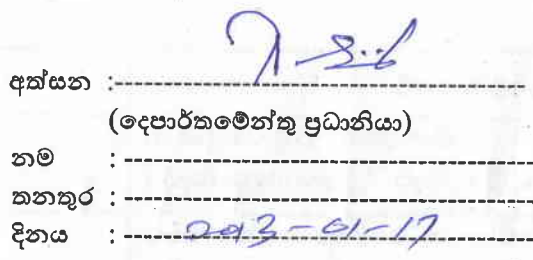 අත්සන :
(දෙපාර්තමේන්තු ප්‍රධානියා)
නම :
තනතුර :
දිනය : 2013-01-17